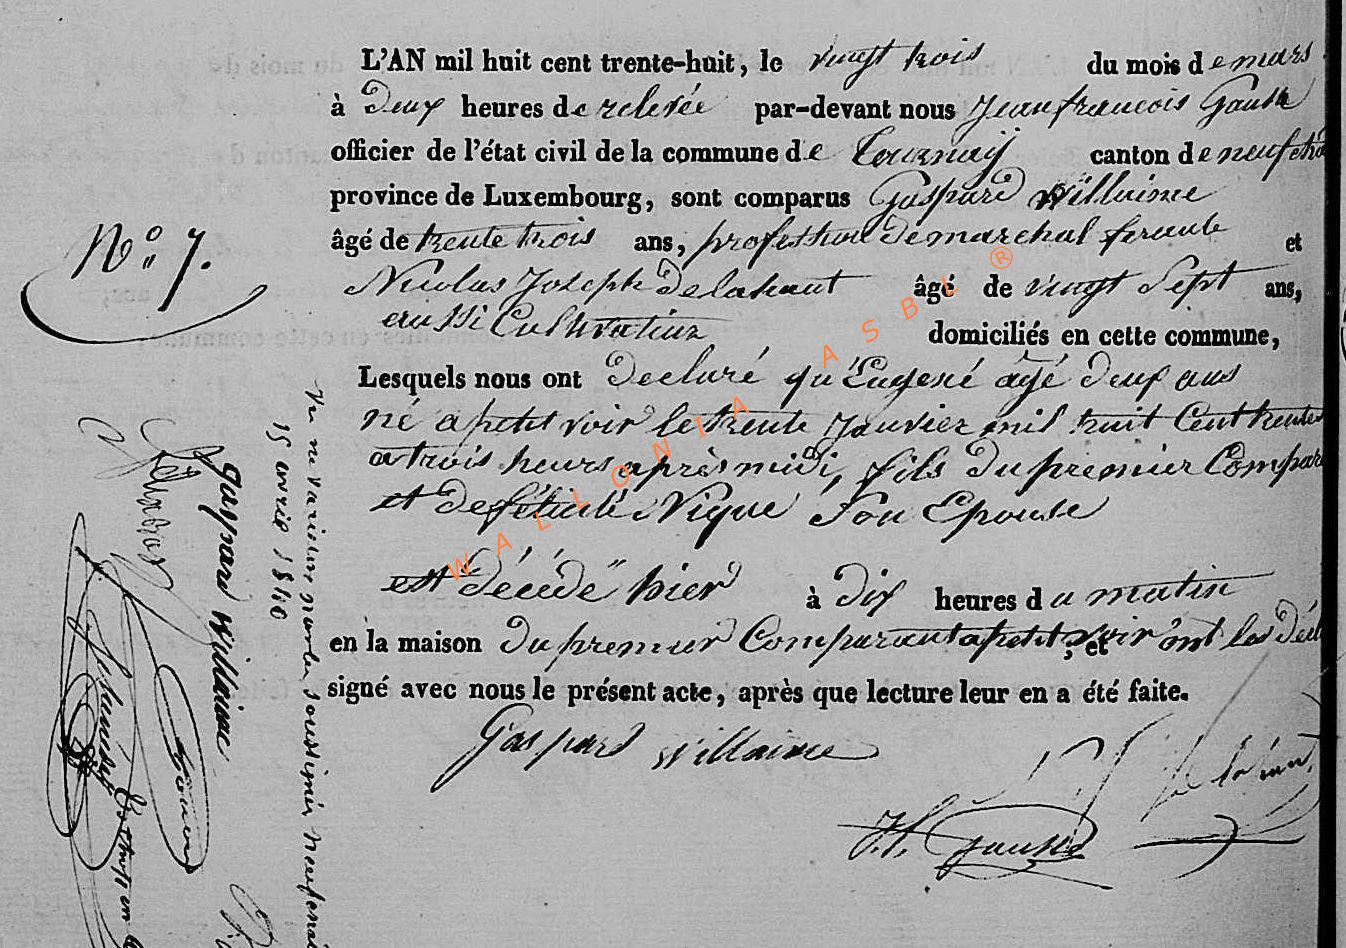 L'AN mil huit cent trente-huit, le vingt trois du mois de mars
à Deux heures de relevée par-devant nous Jean françois Gausse
officier de l'état civil de la commune de Tournay canton de neufchâ
province de Luxembourg, sont comparus Gaspard Willaime
âgé de trente trois ans, profession de marechal ferante et
Nicolas Joseph Delahaut âgé de vingt Sept ans,
aussi Cultivateur domiciliés en cette commune,
Lesquels nous ont declaré qu'Eugené âgé deux ans
né a petit voir le trente Janvier mil huit Cent trente
a trois heurs après midi, fils du premier Compar
et de félicité Nique Son Epouse
est décédé hier à Dix heures du matin
en la maison du premier Comparant a petit voir, et ont les décl
signé avec nous le présent acte, après que lecture leur en a été faite.
Gaspard Willaime
J.f. Gausse
N.º 7.
Vu ne varietur par les soussignés
15 avril 1840
Gaspard Willaime
W A L L O N I A A S B L ®